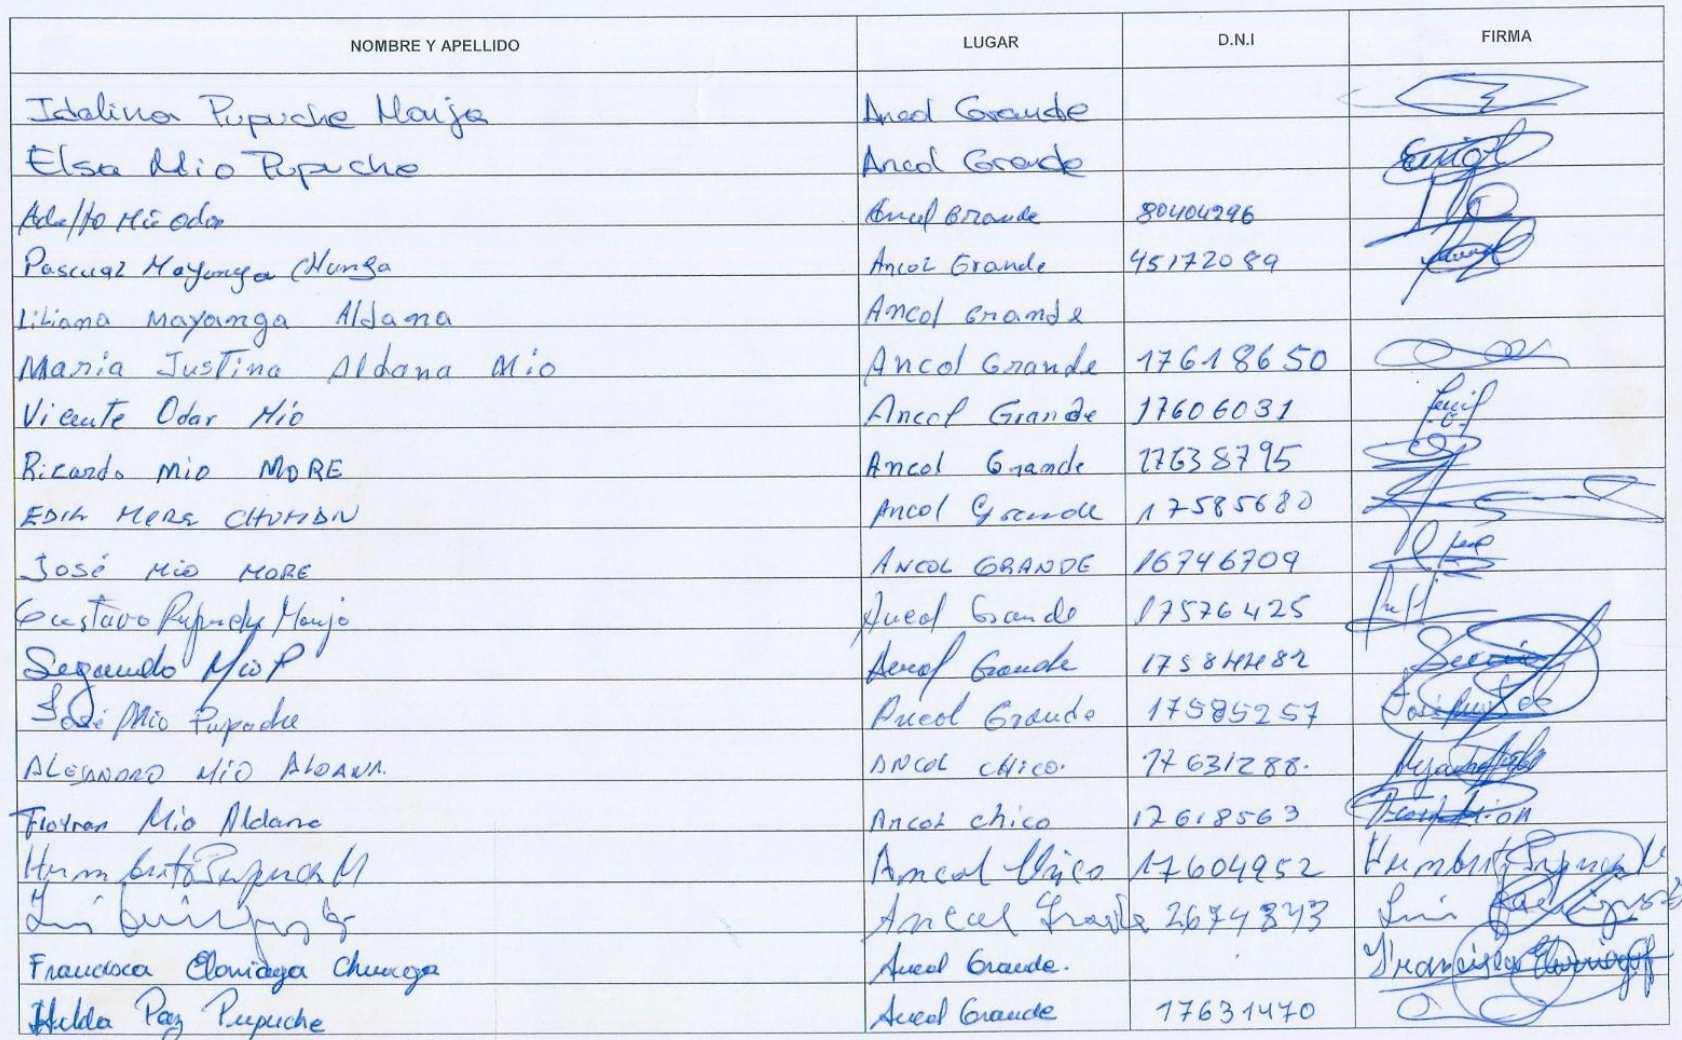 NOMBRE Y APELLIDO LUGAR D.N.I FIRMA
Idalina Pupuche Monja Ancol Grande
Elsa Mio Pupuche Ancol Grande
Adolfo Mio odar Ancol Grande 80404296
Pascual Mayanga Chunga Ancol Grande 45172089
Liliana Mayanga Aldana Ancol Grande
Maria Justina Aldana Mio Ancol Grande 17618650
Vicente Odar Mio Ancol Grande 17606031
Ricardo Mio MORE Ancol Grande 17638795
Ancol Grande 17585680
José Mio MORE ANCOL GRANDE 16746709
Gustavo Pupuche Monja Ancol Grande 17576425
Segundo Mio P Ancol Grande
José Mio Pupuche Ancol Grande 17585257
ALEJANDRO MIO ALDANA. ANCOL CHICO. 17631288.
Mio Aldana Ancol chico 17618563
Humberto Pupuche M Ancol Chico 17604952 Humberto
Luis Ancol Grande Luis
Francisca Chunga Ancol Grande. Francisca
Hilda Paz Pupuche Ancol Grande 17631470